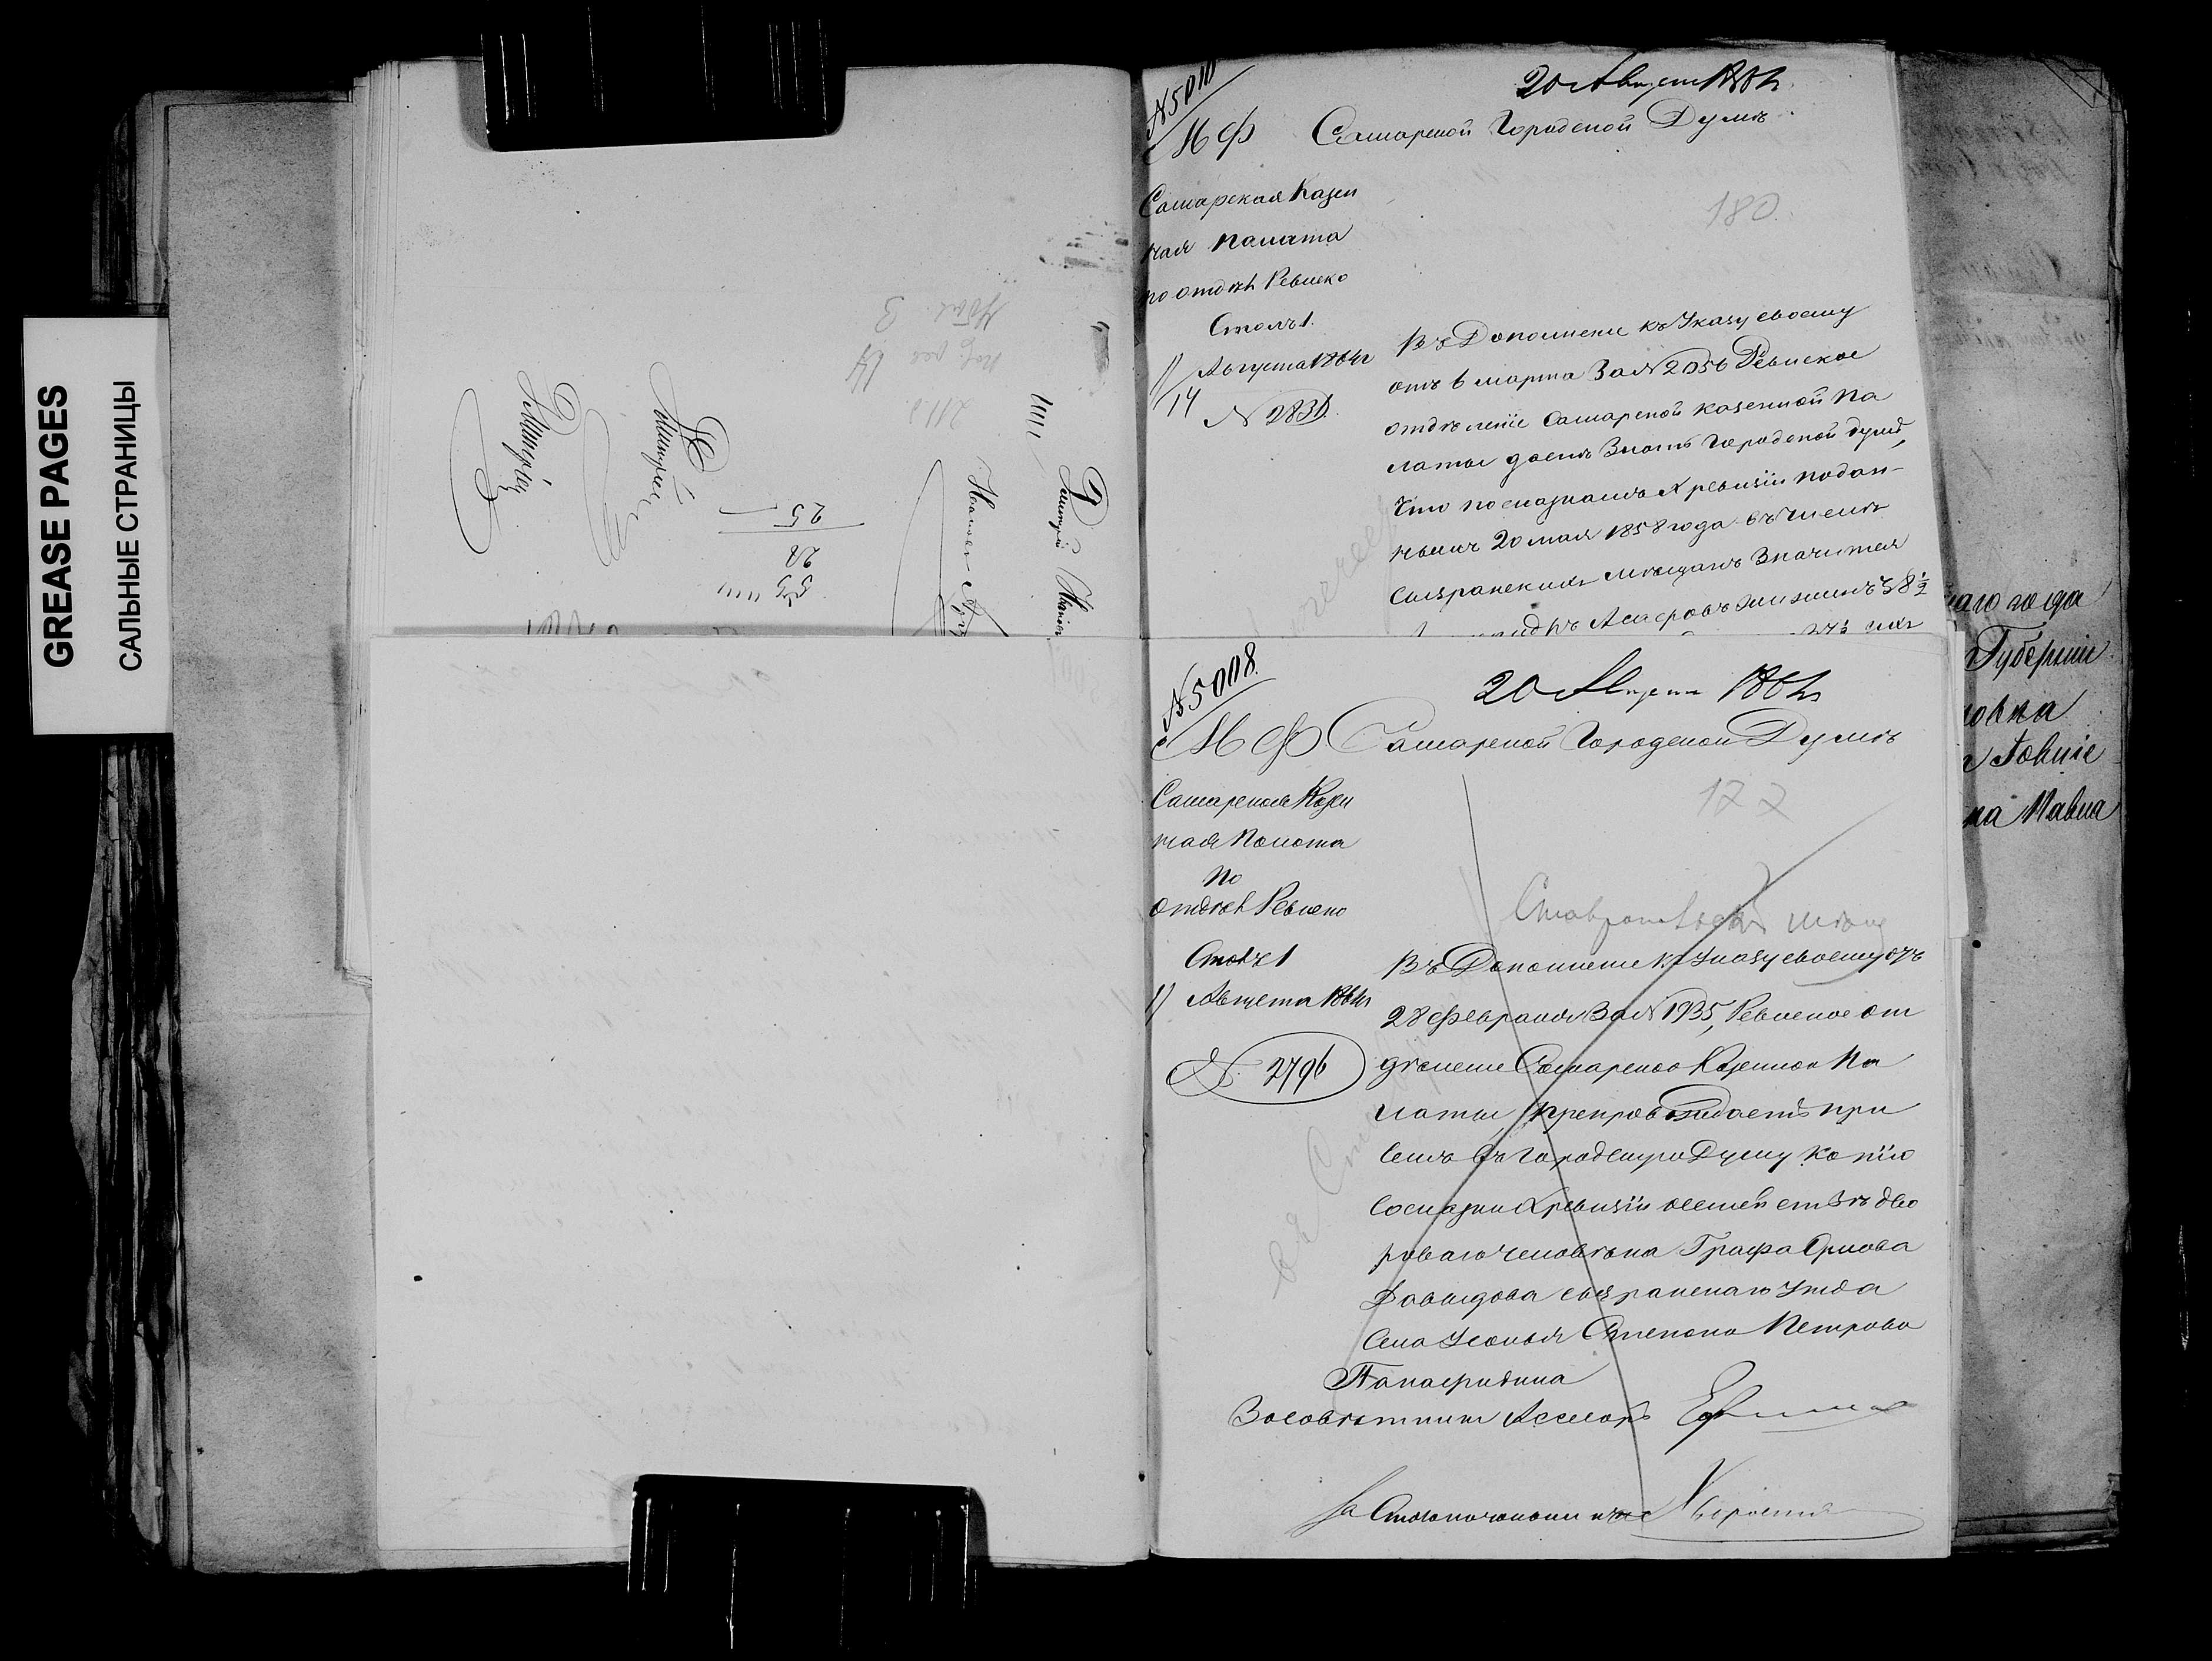 GREASE PAGES
САЛЬНЫЕ СТРАНИЦЫ
№ 5010
20 Августа 1864
М Ф
Самарской Городской Думѣ
180
Самарская Казен
ная Палата
по отдѣл Ревизско
Столъ 1.
11/14 Августа 1864 г
№ 2830.
Въ Дополнение къ Указу своему
отъ 6 марта За № 2056 Ревиское
отдѣленіе Самарской казенной Па
латы даетъ Знать Городской думѣ,
Что по сказкамъ X ревизіи подан-
нымъ 20 мая 1858 года въ числѣ
Сызранскихъ мещанъ Значится
38 1/2
Дмитрій Иванов
Дмитрій
28
25
№ 5008.
20 Августа 1864
М Ф Самарской Городской Думѣ
Самарская Казен
ная Палата
По
отдѣл Ревизско
Столъ 1
11 Августа 1864 г
№ 2796
177
Въ Дополнение къ Указу своему отъ
28 февраля За № 1935, Ревиское от
дѣление Самарской Казенной Па
латы, препровождаетъ при
семъ въ Городскую Думу копію
со сказки X ревизіи о
дво
роваго человѣка Графа Орлова
Давыдова сызранскаго Уѣзда
Села Усолья Степана Петрова
За совѣтника Ассесоръ
За Столоначальника
аго года
Губерніи
овна
на Павла